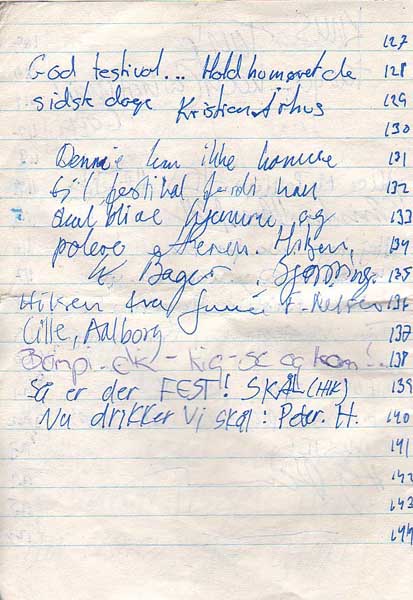 127
God festival... Hold humøret de 128
sidste dage Kristian Århus 129
130
Dennie kan ikke komme 131
til festival fordi han 132
skal blive hjemme og 133
polere stenen. Hilsen, 134
K. Bager. Hjørring. 135
Hilsen fra Junior F. 136
Cille, Aalborg 137
- kig-se og kom! 138
Så er der FEST! SKÅL (HIK) 139
Nu drikker Vi skål: Peter. H. 140
141
142
143
144